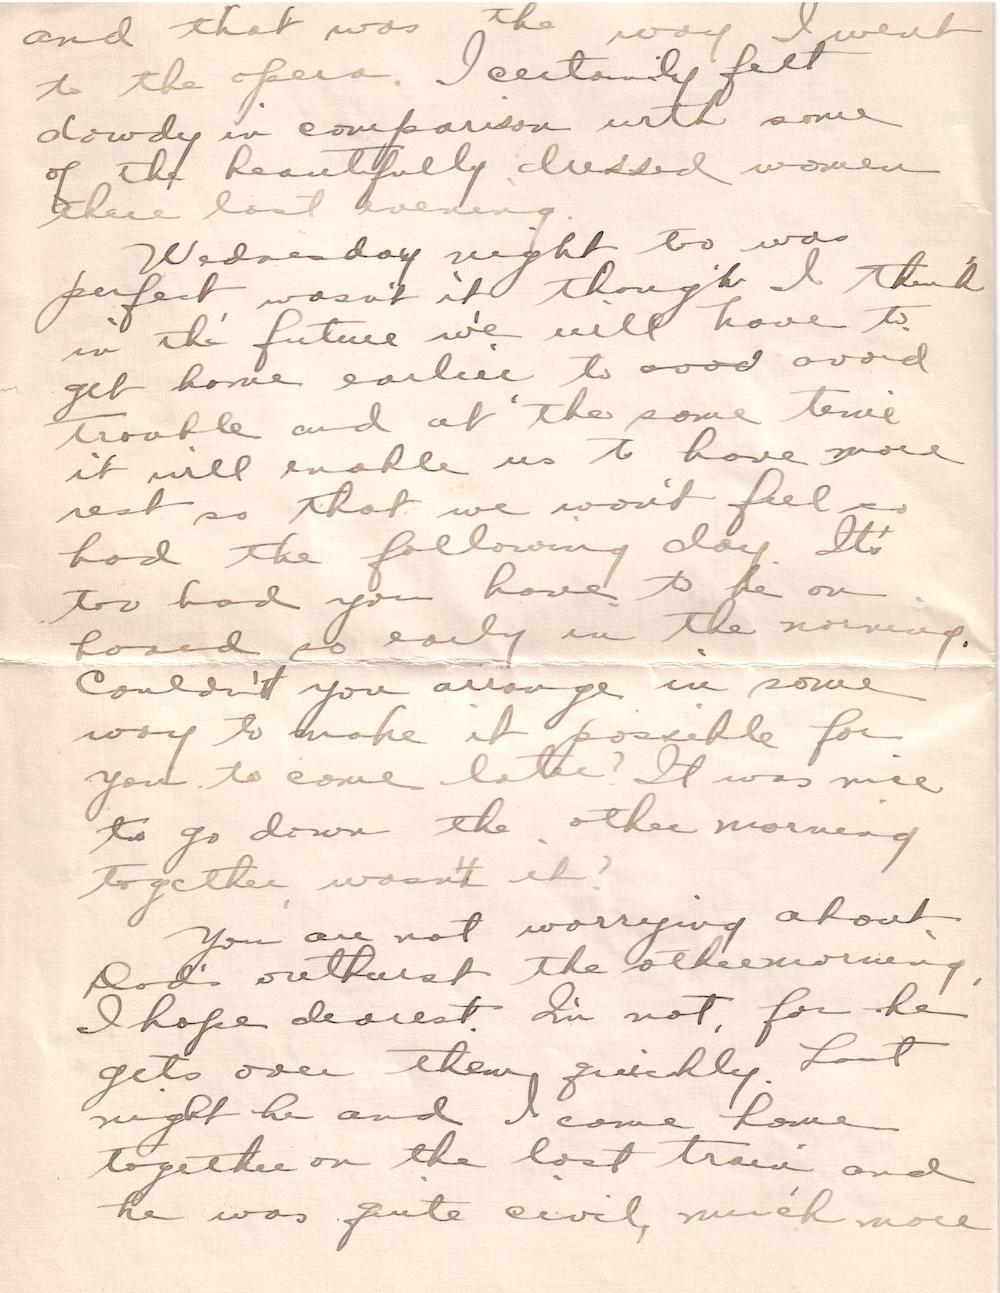 and that was the way I went
to the opera. I certainly felt
dowdy in comparison with some
of the beautifully dressed women
there last evening.
Wednesday night too was
perfect wasn't it though I think
in the future we will have to
get home earlier to avod avoid
trouble and at the same time
it will enable us to have more
rest so that we won't feel so
bad the following day. It's
too bad you have to be on
board so early in the morning.
Couldn't you arrange in some
way to make it possible for
you to come later? It was nice
to go down the other morning
together, wasn't it?
You are not worrying about
Dad's outburst the other morning,
I hope dearest. I'm not, for he
gets over them quickly. Last
night he and I came home
together on the last train and
he was quite civil, much more